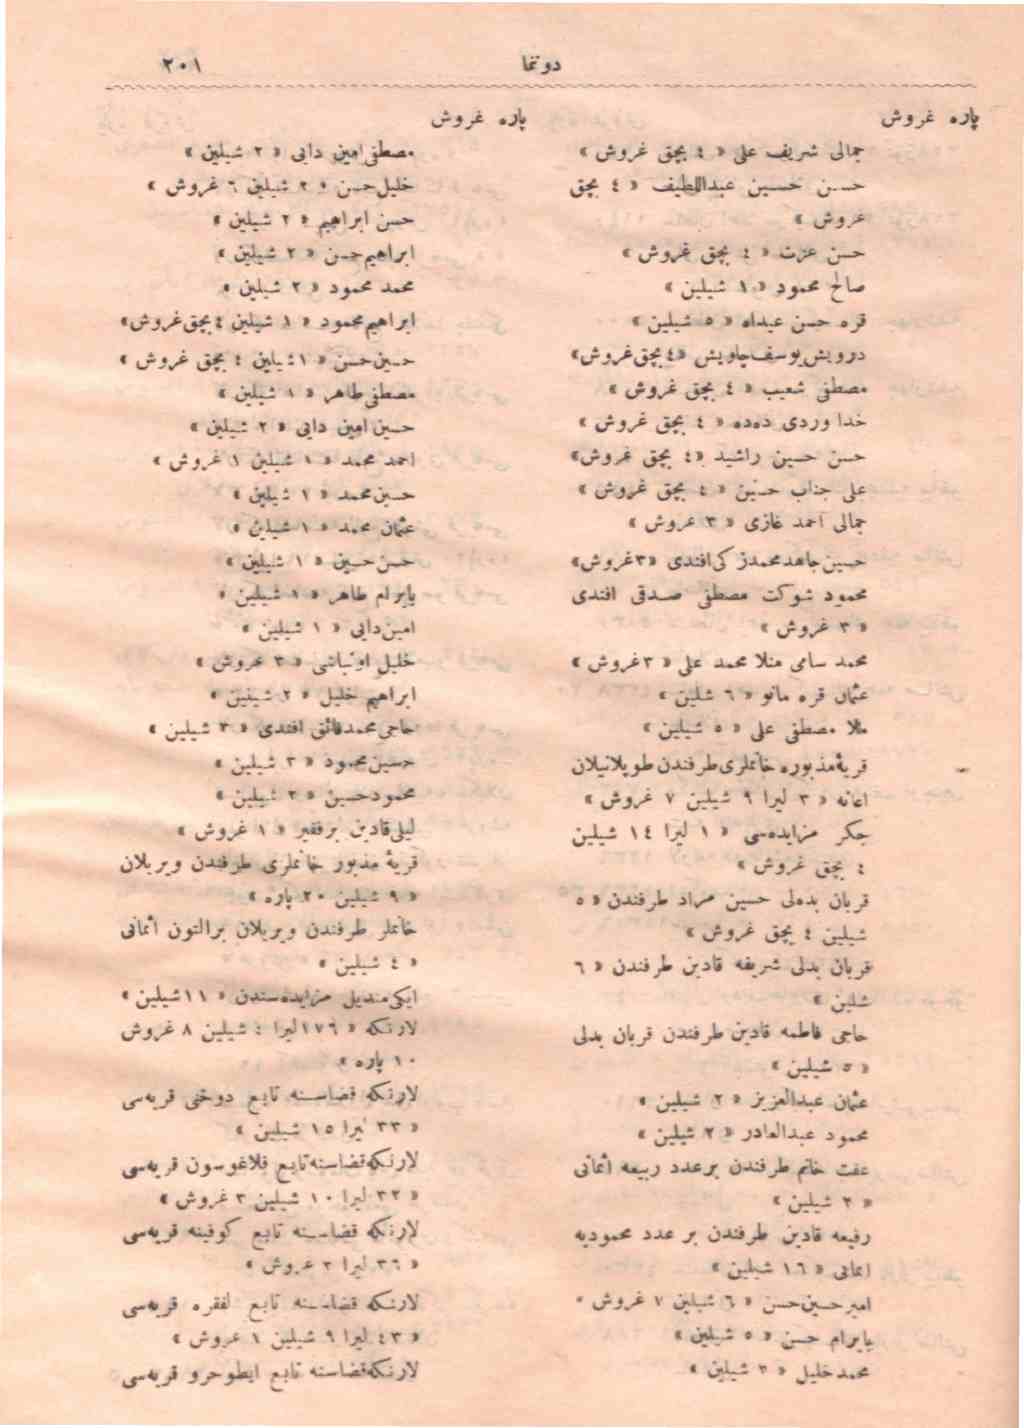 دوتما ٢٠١
پاره غروش
جمالی شریف علی « ٤ بچق غروش »
حسن حسین عبداللطیف « ٤ بچق
غروش »
حسن عزت « ٤ بچق غروش »
صالح محمود « ١ شیلین »
قره حسن عبداه « ٥ شیلین »
درویش یوسف چاویش « ٤ بچق غروش »
مصطفی شعیب « ٤ بچق غروش »
خدا وردی دده « ٤ بچق غروش »
حسن حسین راشید « ٤ بچق غروش »
علی جناب حسین « ٤ بچق غروش »
جمالی احمد غازی « ٣ غروش »
حسین جاهد محمد زکی افندی « ٣ غروش »
محمود شوکت مصطفی صدقی افندی
« ٣ غروش »
محمد سامی منلا محمد علی « ٣ غروش »
عثمان قره مانو « ٦ شلین »
ملا مصطفی علی « ٥ شیلین »
قریۀ مذبوره خانملری طرفندن طوپلانیلان
اعانه « ٣ لیرا ٩ شیلین ٧ غروش »
جکر مزایده‌سی « ١ لیرا ١٤ شیلین
٤ بچق غروش »
قربان بدەلی حسین مراد طرفندن « ٥
شیلین ٤ بچق غروش »
قربان بدلی شریفه قادین طرفندن « ٦
شلین »
حاجی فاطمه قادین طرفندن قربان بدلی
« ٥ شیلین »
عثمان عبدالعزیز « ٢ شیلین »
محمود عبدالعادر « ٢ شیلین »
عفت خانم طرفندن بر عدد ربیعه اثمانی
« ٣ شیلین »
رفیعه قادین طرفندن بر عدد محمودیه
اثمانی « ١٦ شیلین »
امیر حسین حسن « ٦ شیلین ٧ غروش »
بایرام حسن « ٥ شیلین »
محمد خلیل « ٣ شیلین »
پاره غروش
مصطفی امین دایی « ٢ شیلین »
خلیل حسن « ٢ شیلین ٦ غروش »
حسن ابراهیم « ٢ شیلین »
ابراهیم حسن « ٢ شیلین »
محمد محمود « ٢ شیلین »
ابراهیم محمود « ١ شیلین ٤ بچق غروش »
حسین حسن « ١ شیلین ٤ بچق غروش »
مصطفی طاهر « ١ شیلین »
حسین امین دایی « ٢ شیلین »
احمد محمد « ١ شیلین ١ غروش »
حسین محمد « ١ شیلین »
عثمان محمد « ١ شیلین »
حسن حسین « ١ شیلین »
بایرام طاهر « ١ شیلین »
امین دایی « ١ شیلین »
خلیل اونباشی « ٣ غروش »
ابراهیم خلیل « ٢ شیلین »
حاجی محمد فائق افندی « ٣ شیلین »
حسین محمود « ٣ شیلین »
محمود حسین « ٢ شیلین »
لیلی قادین بر فقیر « ١ غروش »
قریۀ مذبور خانملری طرفندن ویریلان
« ٩ شیلین ٢٠ پاره »
خانملر طرفندن ویریلان بر التون اثمانی
« ٤ شیلین »
ایکی مندیل مزایده‌سندن « ١١ شیلین »
لارنکه « ١٧٦ لیرا ٤ شیلین ٨ غروش
١٠ پاره »
لارنکه قضاسنه تابع دوخنی قریه‌سی
« ٣٣ لیرا ١٥ شیلین »
لارنکه قضاسنه تابع فلاغوسون قریه‌سی
« ٣٢ لیرا ١٠ شیلین ٣ غروش »
لارنکه قضاسنه تابع کوفینه قریه‌سی
« ٣٦ لیرا ٢ غروش »
لارنکه قضاسنه تابع لفقره قریه‌سی
« ٤٣ لیرا ٩ شیلین ١ غروش »
لارنکه قضاسنه تابع ایطوحرو قریه‌سی